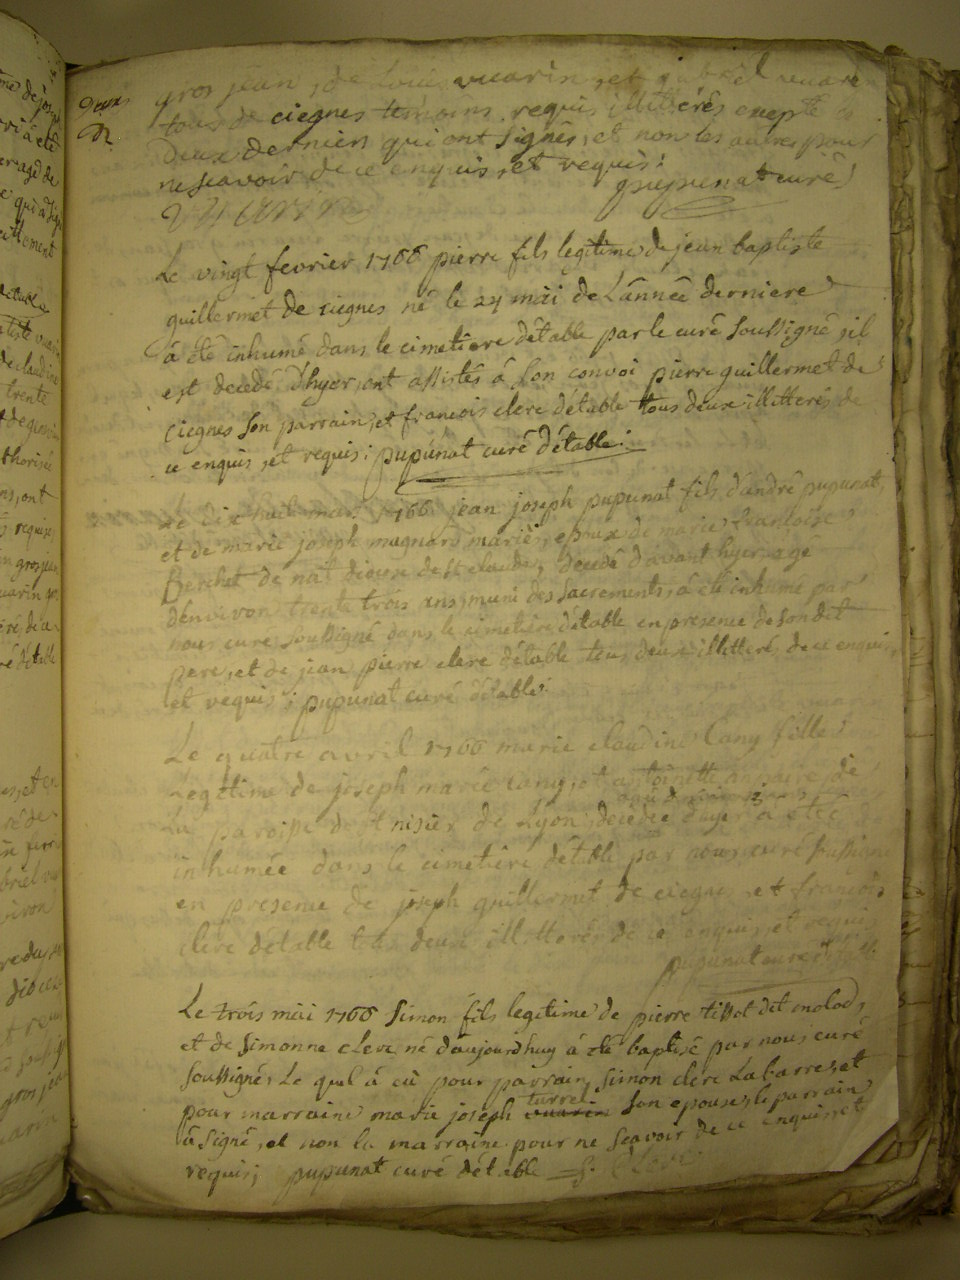 gros jean, de Louis vuarin, et gabriel vuarin
tous de ciegnes temoins requis illittérés exepté les
deux derniers qui ont signés, et non les autres pour
ne scavoir de ce enquis, et requis:
pupunat curé
vuarin
Le vingt fevrier 1766 pierre fils legitime de jean baptiste
guillermet de ciegnes né le 24 mai de L'année derniere
à été inhumé dans le cimetiere d'étable par le curé soussigné, il
est decedé d'hyer, ont assistés à son convoi pierre guillermet de
ciegnes son parrain, et francois clerc d'étable tous deux illitterés de
ce enquis, et requis; pupunat curé d'étable:
Le dix huit mars 1766 jean joseph pupunat fils d'andré pupunat,
et de marie joseph magnard mariés, epoux de marie francoise
Berchet de nat diocese de st claude, decedé d'avant hyer agé
d'environ trente trois ans, muni des sacrements, à été inhumé par
nous curé soussigné dans le cimetiere d'étable en presence de son dit
pere, et de jean pierre clerc d'étable tous deux illitterés, de ce enquis,
et requis; pupunat curé d'étable:
Le quatre avril 1766 marie claudine Cany fille
Legitime de joseph marie Cany, et antoinette de
La paroisse de st nisier de Lyon, decedée d'hyer à été
inhumée dans le cimetiere d'étable par nous curé soussigné
en presence de joseph guillermet de ciegnes, et francois
clerc d'étable tous deux illitterés de ce enquis, et requis
pupunat curé d'étable.
Le trois mai 1766 Simon fils legitime de pierre tissot dit molod,
et de Simonne clerc né d'aujourdhuy à été baptisé par nous curé
soussigné, Le quel à eù pour parrain, Simon clerc Labarre, et
pour marraine marie joseph turrel son epouse, le parrain
à signé, et non la marraine pour ne scavoir de ce enquis, et
requis; pupunat curé d'étable S. Clerc